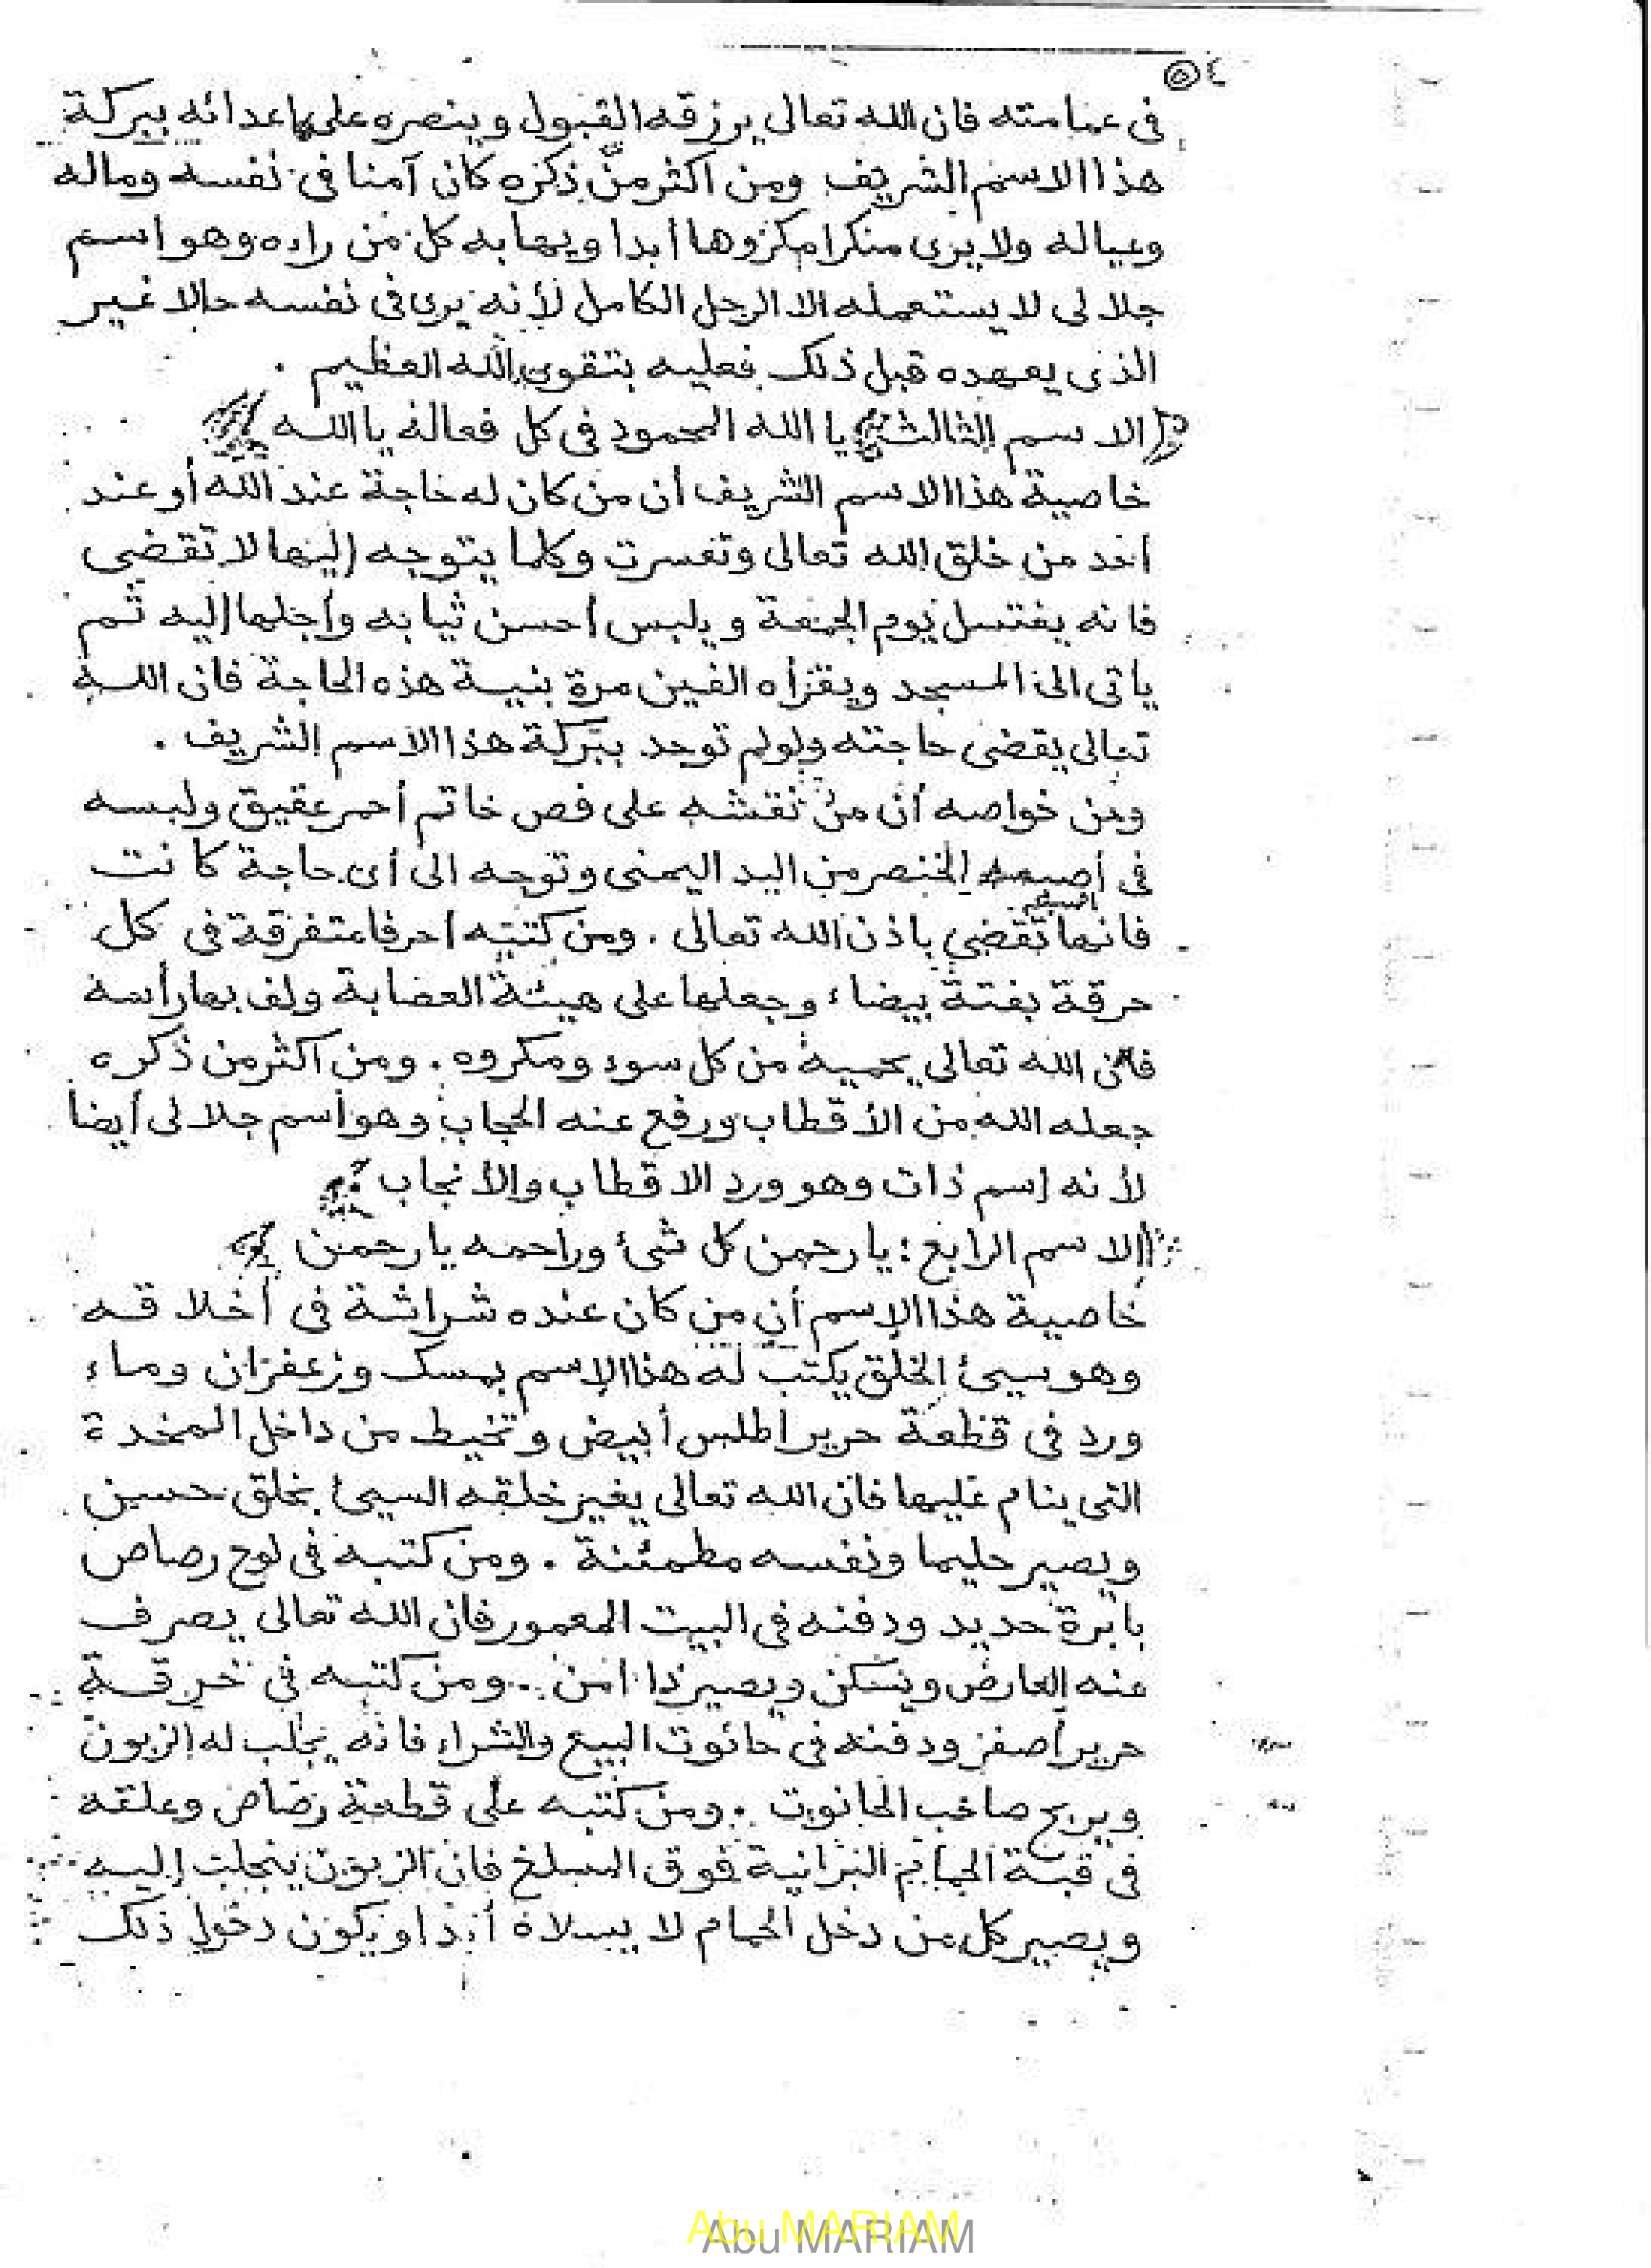 ٤
٥
فى عمامته فان الله تعالى يرزقه القبول وينصره على اعدائه ببركة
هذا الاسم الشريف ومن اكثر من ذكره كان آمنا فى نفسه وماله
وعياله ولا يرى منكرا مكروها أبدا ويهابه كل من راءه وهو اسم
جلالى لا يستعمله الا الرجل الكامل لأنه يرى فى نفسه حالا غير
الذى يعهده قبل ذلك فعليه بتقوى الله العظيم .
( الاسم الثالث يا الله المحمود فى كل فعاله يا الله
خاصية هذا الاسم الشريف أن من كان له حاجة عند الله أو عند
أحد من خلق الله تعالى وتعسرت وكلما يتوجه إليها لا تقضى
فانه يغتسل يوم الجمعة ويلبس أحسن ثيابه وأجلها إليه ثم
ياتى الى المسجد ويقرأه الفين مرة بنية هذه الحاجة فان الله
تعالى يقضى حاجته ولولم توجد ببركة هذا الاسم الشريف .
ومن خواصه أن من نقشه على فص خاتم أحمر عقيق ولبسه
فى أصبعه الخنصر من اليد اليمنى وتوجه الى أى حاجة كانت
فانها تقضي باذن الله تعالى . ومن كتبته احرفا متفرقة فى كل
حرقة بفتة بيضاء وجعلها على هيئة العصابة ولف بها رأسه
فان الله تعالى يحميه من كل سوء ومكروه . ومن اكثر من ذكره
جعله الله من الأقطاب ورفع عنه الحجاب وهو أسم جلالى أيضا
لأنه إسم ذات وهو ورد الاقطاب والأنجاب
الاسم الرابع : يا رحمن كل شئ وراحمه يا رحمن
خاصية هذا الإسم أن من كان عنده شراشة فى أخلاقه
وهو سيئ الخلق يكتب له هذا الإسم بمسك وزعفران وماء
ورد فى قطعة حرير أطلس أبيض وتخيط من داخل المخدة
التى ينام عليها فان الله تعالى يغير خلقه السيئ بخلق حسن
ويصير حليما ونفسه مطمئنة . ومن كتبه فى لوح رصاص
بابرة حديد ودفنه فى البيت المعمور فان الله تعالى يصرف
عنه العارض ويسكن ويصير ذا امن . ومن كتبه فى خرقة
حرير أصفر ودفنه فى حانوت البيع والشراء فانه يجلب له الزبون
ويربح صاحب الحانوت . ومن كتبه على قطعة رصاص وعلقه
فى قبة الحمام البرانية فوق المسلخ فان الزبون ينجلب إليه
ويصير كل من دخل الحمام لا يسلاه أبدا ويكون دخول ذلك
Abu MARIAM